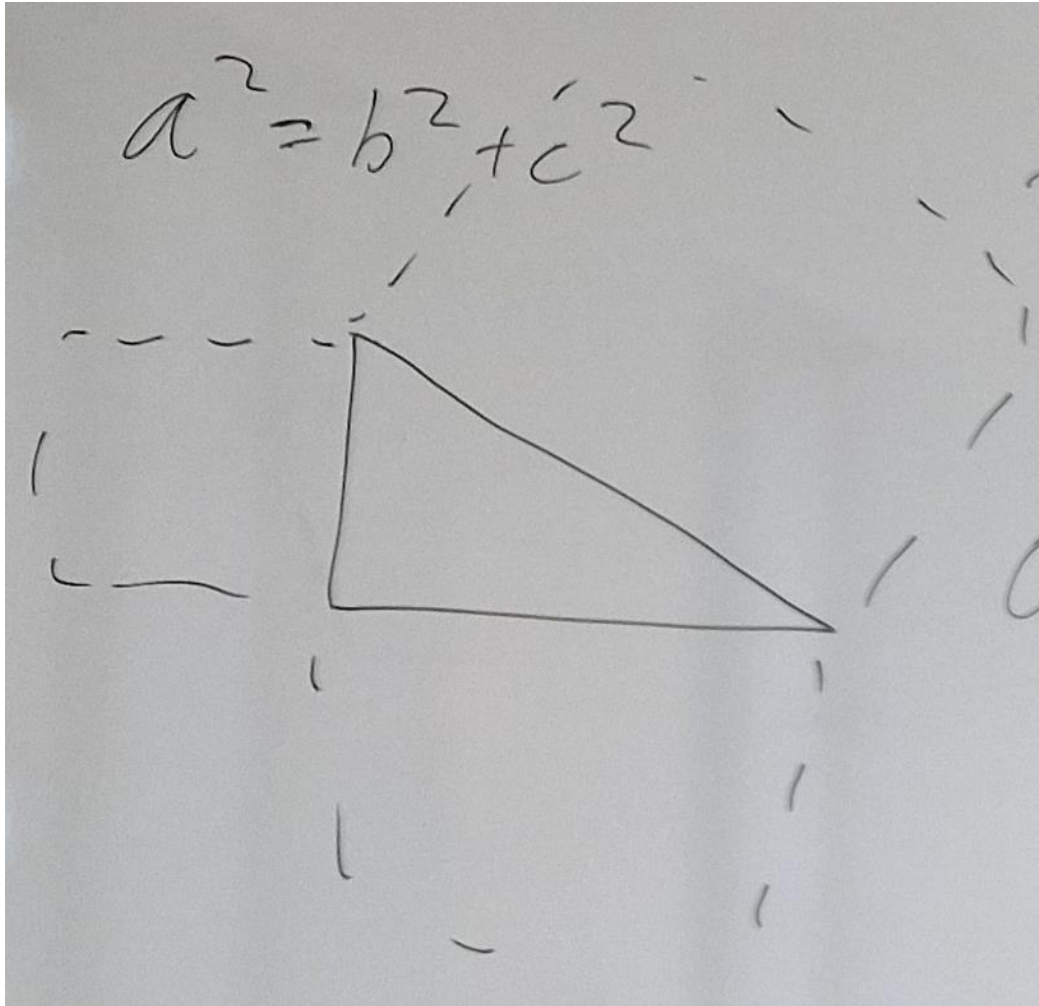 a² = b² + c²